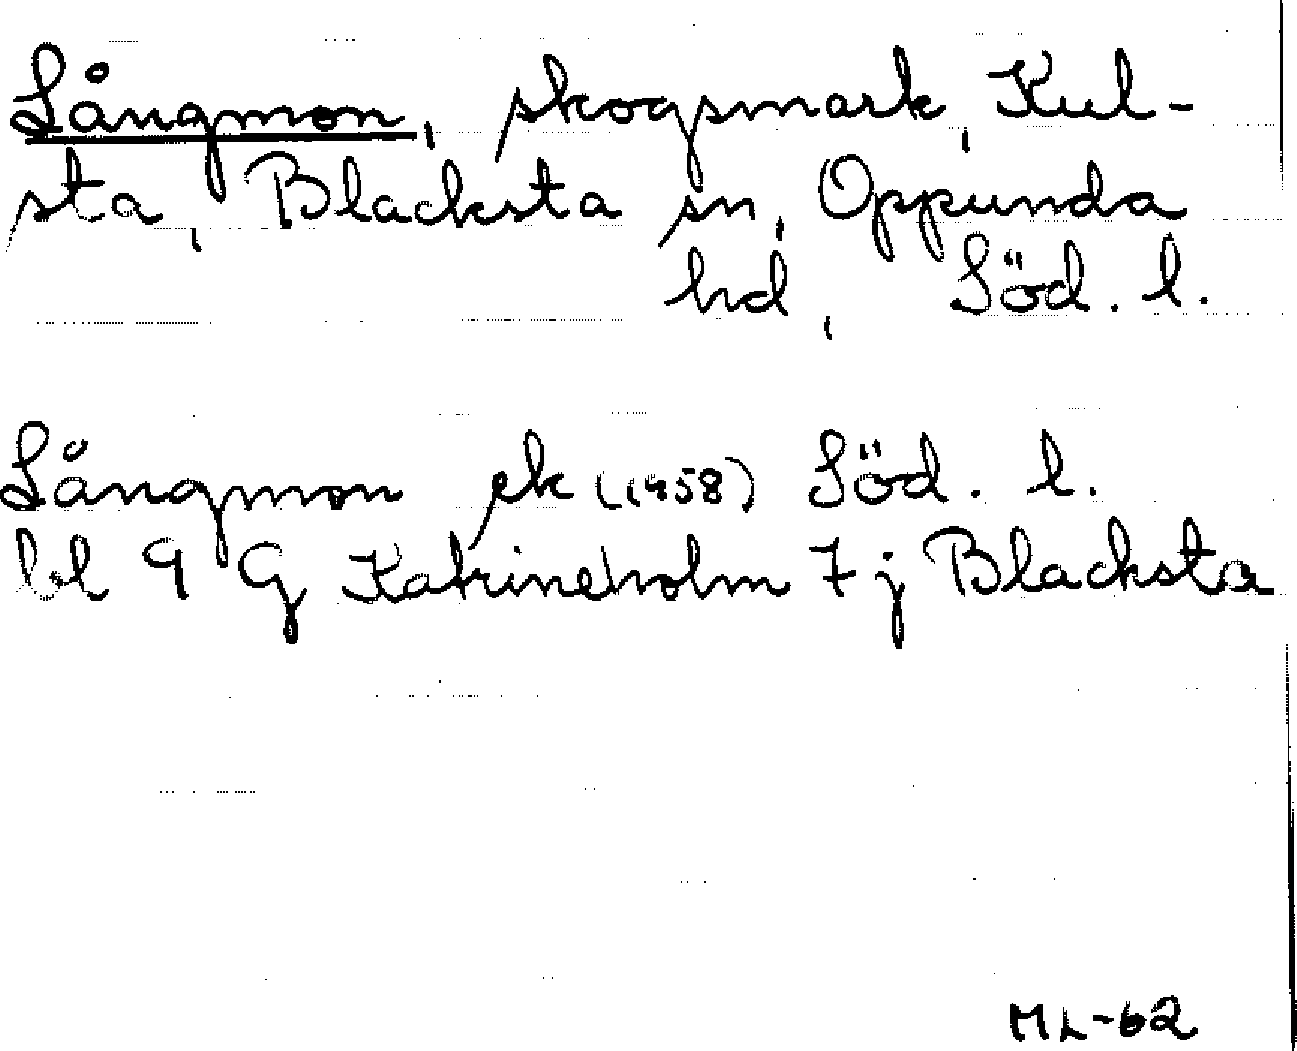 Långmon, skogsmark, Kul-
sta, Blacksta sn, Oppunda
hd, Söd. l.
Långmon ek (1958) Söd. l.
bl 9 G Katrineholm 7 j Blacksta
ML-62